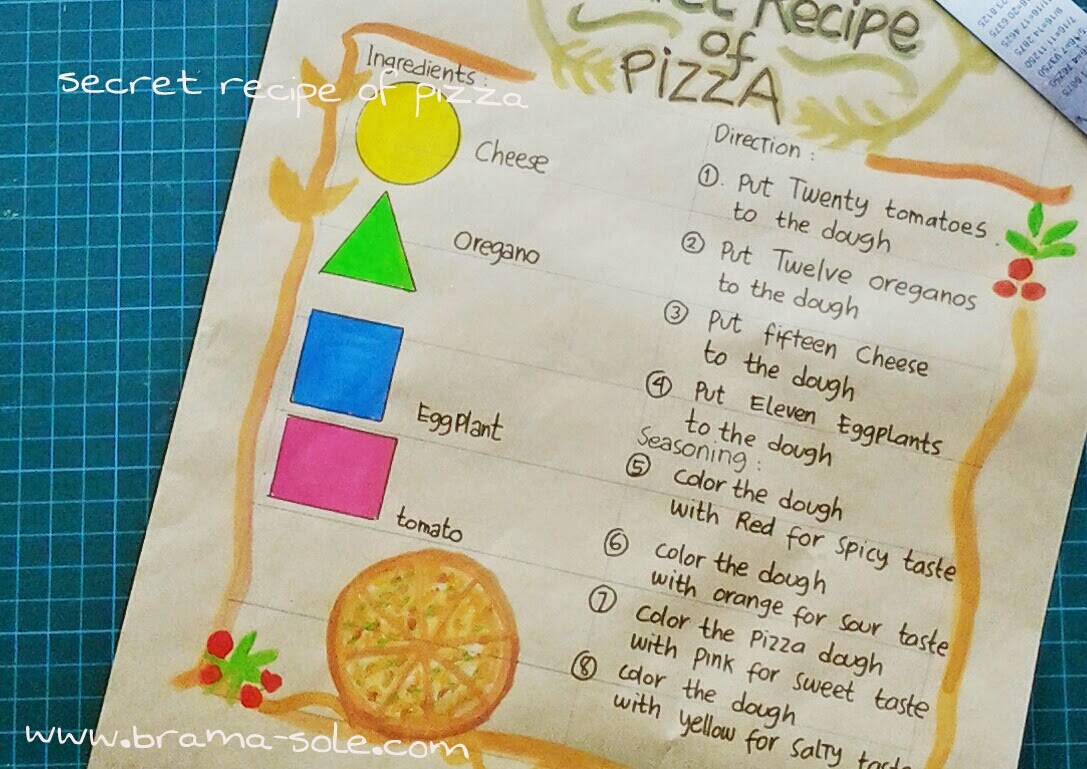 Recipe
of
PIZZA
secret recipe of pizza
Ingredients :
Cheese
Oregano
EggPlant
tomato
Direction :
1. Put Twenty tomatoes.
to the dough
2 Put Twelve oreganos
to the dough
3 Put fifteen Cheese
to the dough
4 Put Eleven Eggplants
to the dough
Seasoning :
5 Color the dough
with Red for spicy taste
6 color the dough
with orange for sour taste
7 Color the Pizza dough
with Pink for sweet taste
8 Color the dough
with yellow for salty taste
www.brama-sole.com